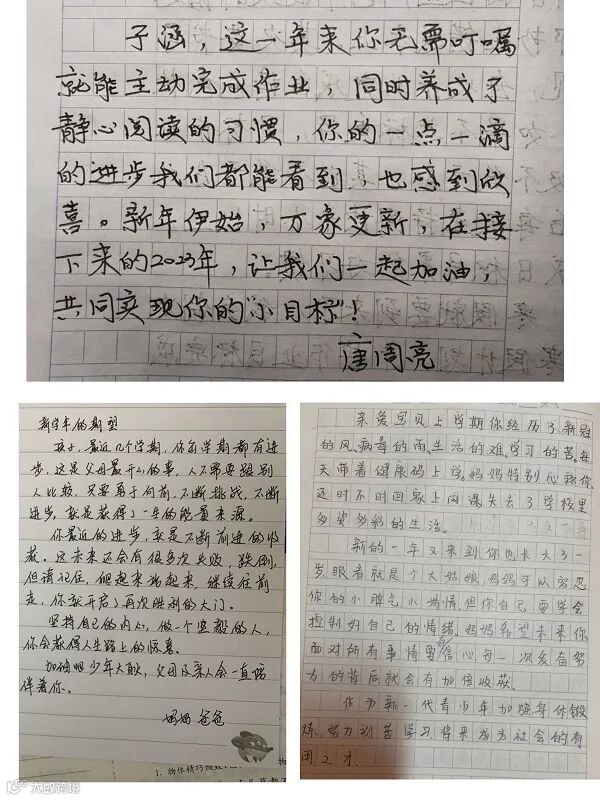 子涵，这一年来你无需叮嘱
就能主动完成作业，同时养成了
静心阅读的习惯，你的一点一滴
的进步我们都能看到，也感到欣
喜。新年伊始，万象更新，在接
下来的2023年，让我们一起加油，
共同实现你的“小目标”！
唐周亮
新学年的期望
孩子，最近几个学期，你每学期都有进
步，这是父母最开心的事，人不需要跟别
人比较，只要勇于向前，不断挑战，不断
进步，就是获得了一生的能量来源。
你最近的进步，就是不断前进的收
获。这未来还会有很多次失败，跌倒，
但请记住，爬起来站起来，继续往前
走，你就开启了再次胜利的大门。
坚持自己的内心，做一个坚毅的人，
你会获得人生路上的惊喜。
加油吧少年大耿，父母及亲人会一直陪
伴着你。
妈妈 爸爸
1. 物体精巧
亲爱宝贝上学期你经历了新冠
的风、病毒的雨、生活的难、学习的苦。每
天带着健康码上学，妈妈特别心疼你，
还时不时回家上网课失去了学校里
多姿多彩的生活。
新的一年又来到你也长大了一
岁，眼看就是个大姑娘，妈妈可以容忍
你的小脾气小嬌情，但你自己要学会
控制好自己的情绪，妈妈希望未来你
面对所有事情要有信心，每一次发奋努
力的背后就会有加倍收获。
作为新一代青少年加强身体锻
炼，努力刻苦学习将来成为社会的有
用之才。
大数跨境